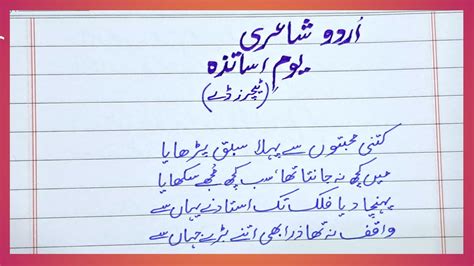 اُردو شاعری
یومِ اساتذہ
(ٹیچرز ڈے)
کتنی محبتوں سے پہلا سبق پڑھایا
میں کچھ نہ جانتا تھا، سب کچھ مُجھے سکھایا
پہنچا دیا فلک تک استاد نے یہاں سے
واقف نہ تھا ذرا بھی اتنے بڑے جہاں سے